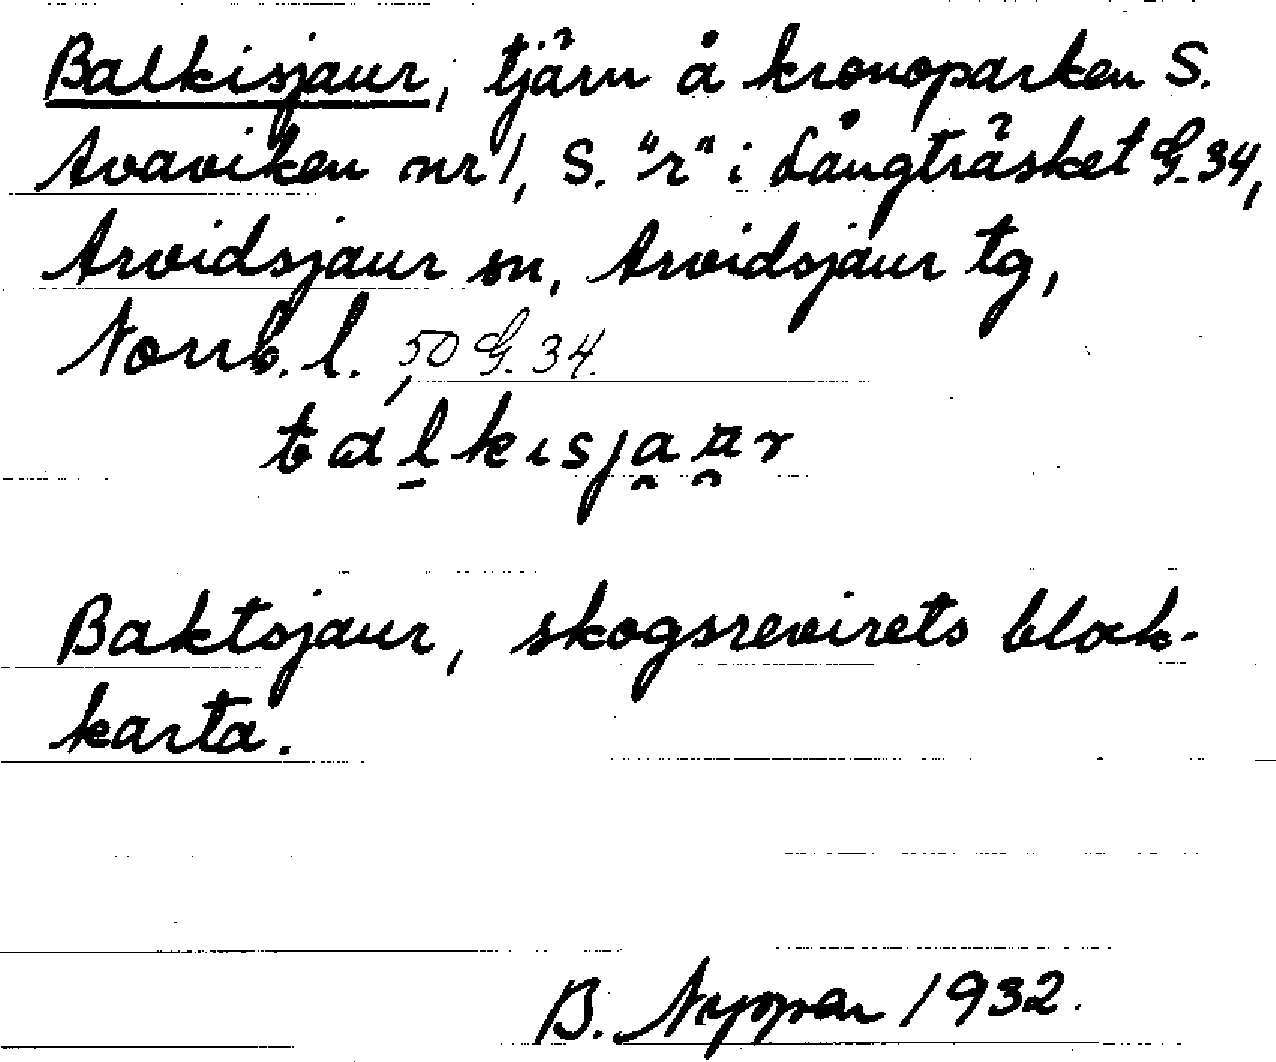 Balkisjaur, tjärn å kronoparken S.
Avaviken nr 1, S. "r" i Långträsket G. 34,
Arvidsjaur sn, Arvidsjaur tg,
Norrb. l. 50 G. 34.
bálkisjau̯r
Baktsjaur, skogsrevirets block-
karta.
B. 1932.